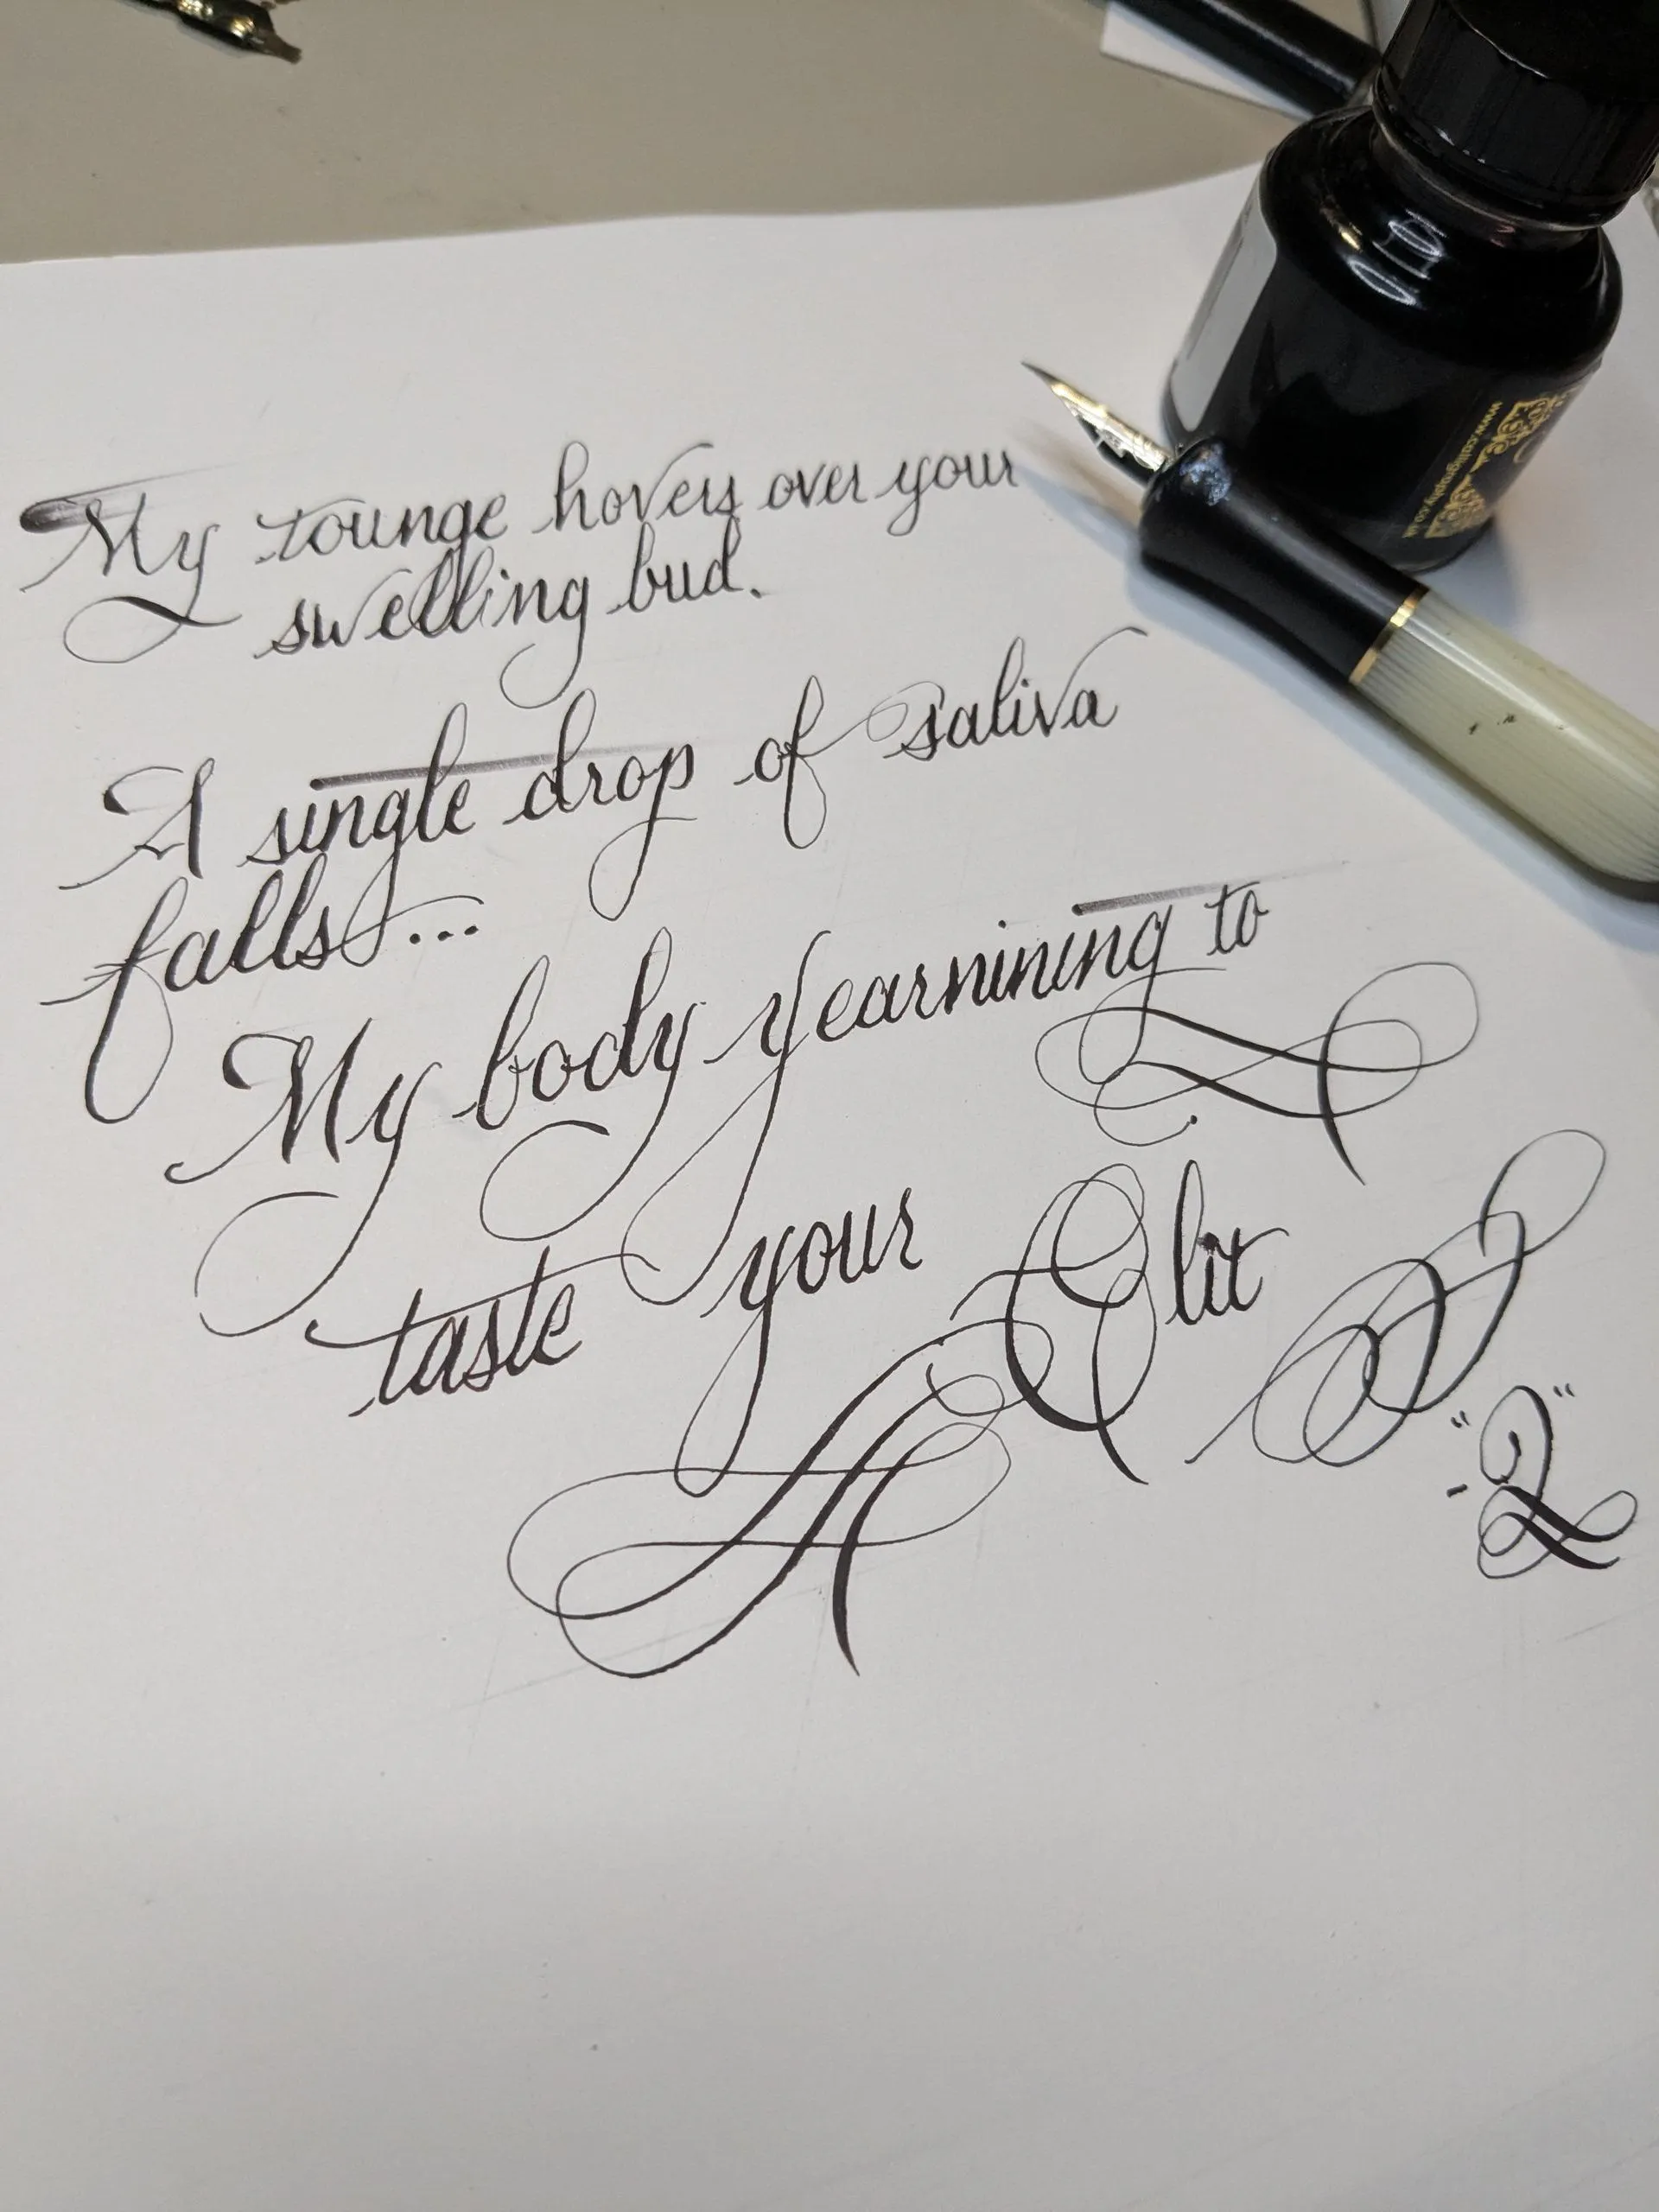 My tounge hovers over your
swelling bud.
A single drop of saliva
falls...
My body yearnining to
taste your Clit
www.calligraphy.co.uk